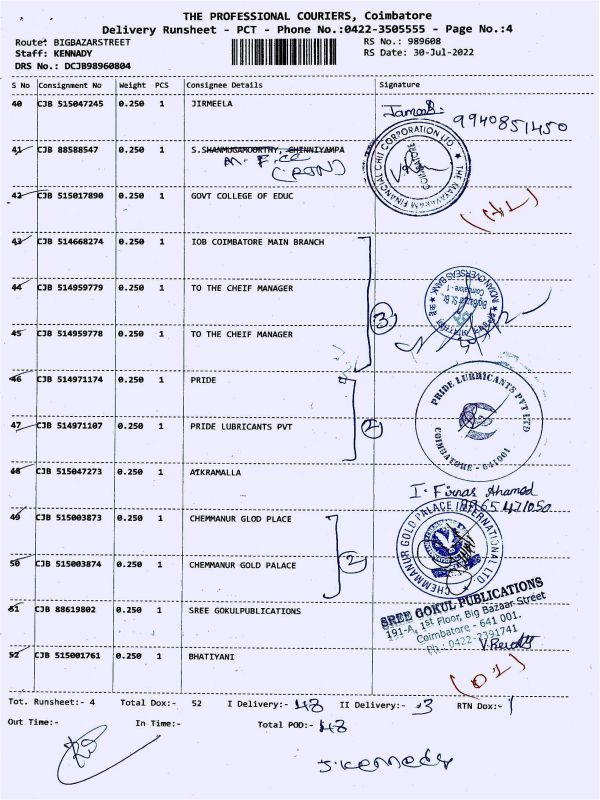 THE PROFESSIONAL COURIERS, Coimbatore
Delivery Runsheet - PCT - Phone No.:0422-3505555 - Page No.:4
Route: BIGBAZARSTREET
RS No.: 989608
Staff: KENNADY
RS Date: 30-Jul-2022
DRS No.: DCJB98960804
S No Consignment No Weight PCS Consignee Details Signature
40 CJB 515047245 0.250 1 JIRMEELA
9940851450
41 CJB 88588547 0.250 1 S.SHANMUGAMOORTHY, CHINNIYAMPA
42 CJB 515017890 0.250 1 GOVT COLLEGE OF EDUC
43 CJB 514668274 0.250 1 IOB COIMBATORE MAIN BRANCH
44 CJB 514959779 0.250 1 TO THE CHEIF MANAGER
INDIAN OVERSEAS BANK
BigBazaar St. Br.
Coimbatore - 1
3
45 CJB 514959778 0.250 1 TO THE CHEIF MANAGER
46 CJB 514971174 0.250 1 PRIDE
PRIDE LUBRICANTS PVT LTD
COIMBATORE - 641001
47 CJB 514971107 0.250 1 PRIDE LUBRICANTS PVT
2
48 CJB 515047273 0.250 1 AIKRAMALLA
I. Firnas Ahamed
49 CJB 515003873 0.250 1 CHEMMANUR GLOD PLACE
CHEMMANUR GOLD PALACE INTERNATIONAL LTD.
50 CJB 515003874 0.250 1 CHEMMANUR GOLD PALACE
2
51 CJB 88619802 0.250 1 SREE GOKULPUBLICATIONS
SREE GOKUL PUBLICATIONS
191-A, 1st Floor, Big Bazaar Street
Coimbatore - 641 001.
Ph : 0422-2391741
52 CJB 515001761 0.250 1 BHATIYANI
(D2)
Tot. Runsheet:- 4 Total Dox:- 52 I Delivery:- 48 II Delivery:- 3 RTN Dox:- 1
Out Time:- In Time:- Total POD:- 48
J. Kennedy